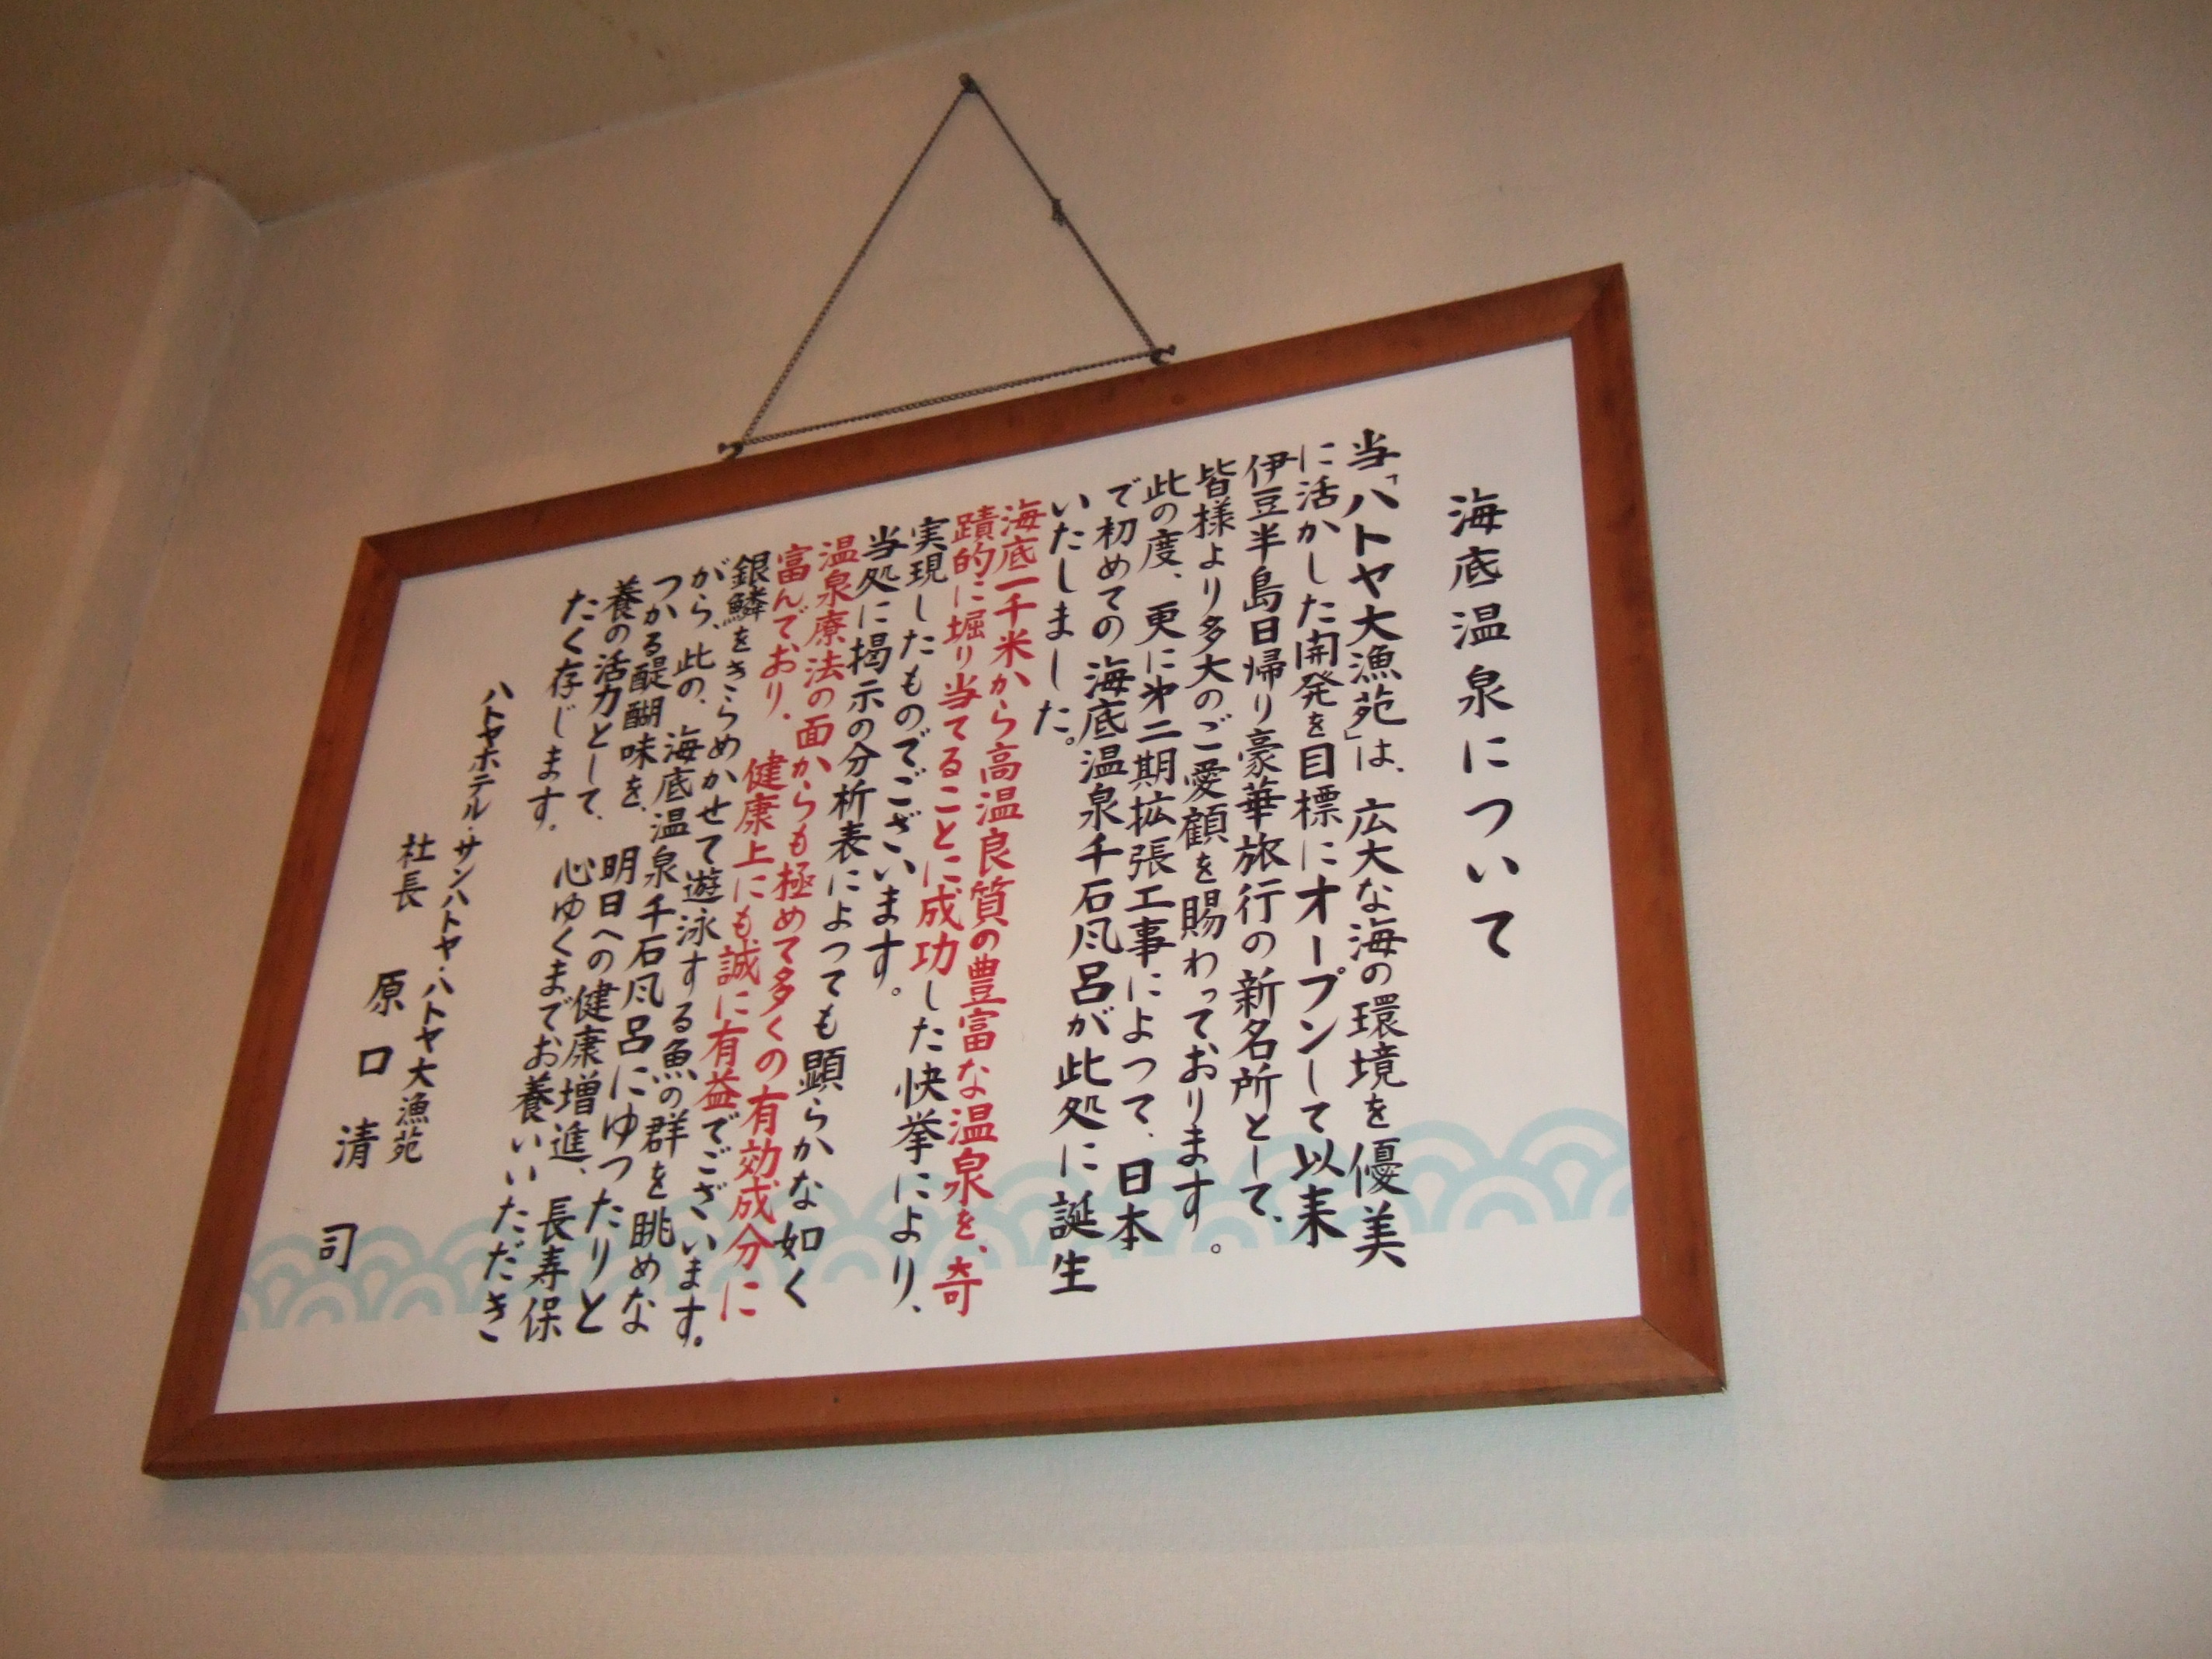 海底温泉について
当「ハトヤ大漁苑」は、広大な海の環境を優美
に活かした開発を目標にオープンして以来
伊豆半島日帰り豪華旅行の新名所として、
皆様より多大のご愛顧を賜わっております。
此の度、更に第二期拡張工事によつて、日本
で初めての海底温泉千石風呂が此処に誕生
いたしました。
海底一千米から高温良質の豊富な温泉を、奇
蹟的に堀り当てることに成功した快挙により、
実現したものでございます。
当処に掲示の分析表によつても顕らかな如く
温泉療法の面からも極めて多くの有効成分に
富んでおり、健康上にも誠に有益でございます。
銀鱗をきらめかせて遊泳する魚の群を眺めな
がら、此の、海底温泉千石風呂にゆつたりと
つかる醍醐味を、明日への健康増進、長寿保
養の活力として、心ゆくまでお養いいただき
たく存じます。
ハトヤホテル・サンハトヤ・ハトヤ大漁苑
社長 原口清司